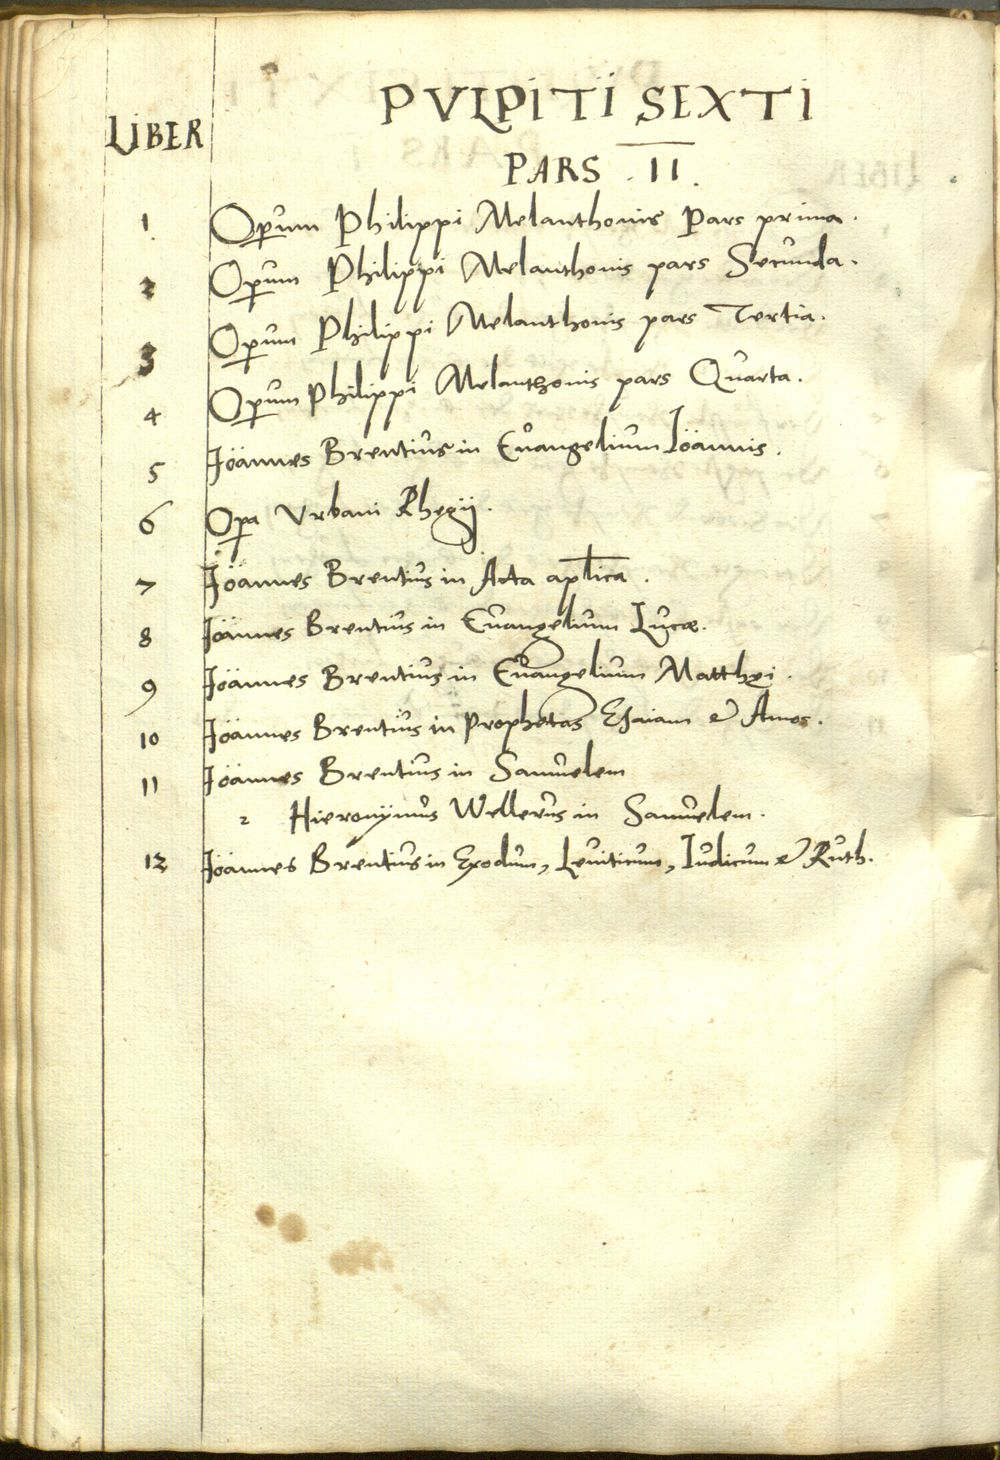 PVLPITI SEXTI
LIBER
PARS . II .
1 Operum Philippi Melanthonis Pars prima.
2 Operum Philippi Melanthonis pars Secunda.
3 Operum Philippi Melanthonis pars Tertia.
4 Operum Philippi Melanthonis pars Quarta.
5 Ioannes Brentius in Euangelium Ioannis.
6 Opera Vrbani Rhegij.
7 Ioannes Brentius in Acta aplica.
8 Ioannes Brentius in Euangelium Lucæ.
9 Ioannes Brentius in Euangelium Matthęi.
10 Ioannes Brentius in Prophetas Esaiam & Amos.
11 Ioannes Brentius in Samuelem
2 Hieronymus Wellerus in Samuelem.
12 Ioannes Brentius in Exodum, Leuiticum, Iudicum & Ruth.